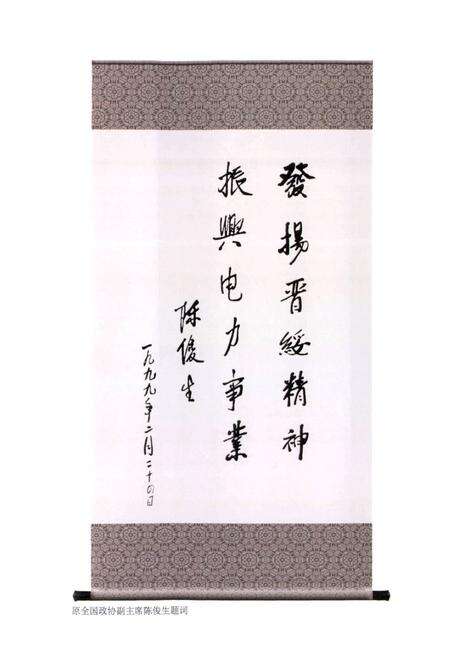 發揚晋綏精神
振興电力事業
陈俊生
一九九九年二月二十四日
原全国政协副主席陈俊生题词